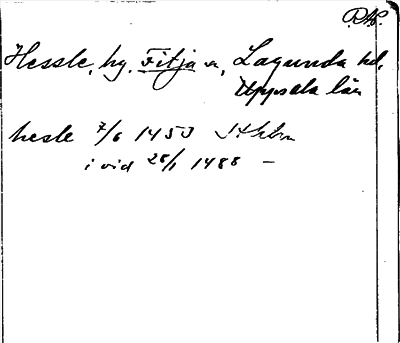 Hessle, by, Fitja sn, Lagunda hd,
Uppsala län
hesle 7/6 1453
i vid 28/1 1488 –